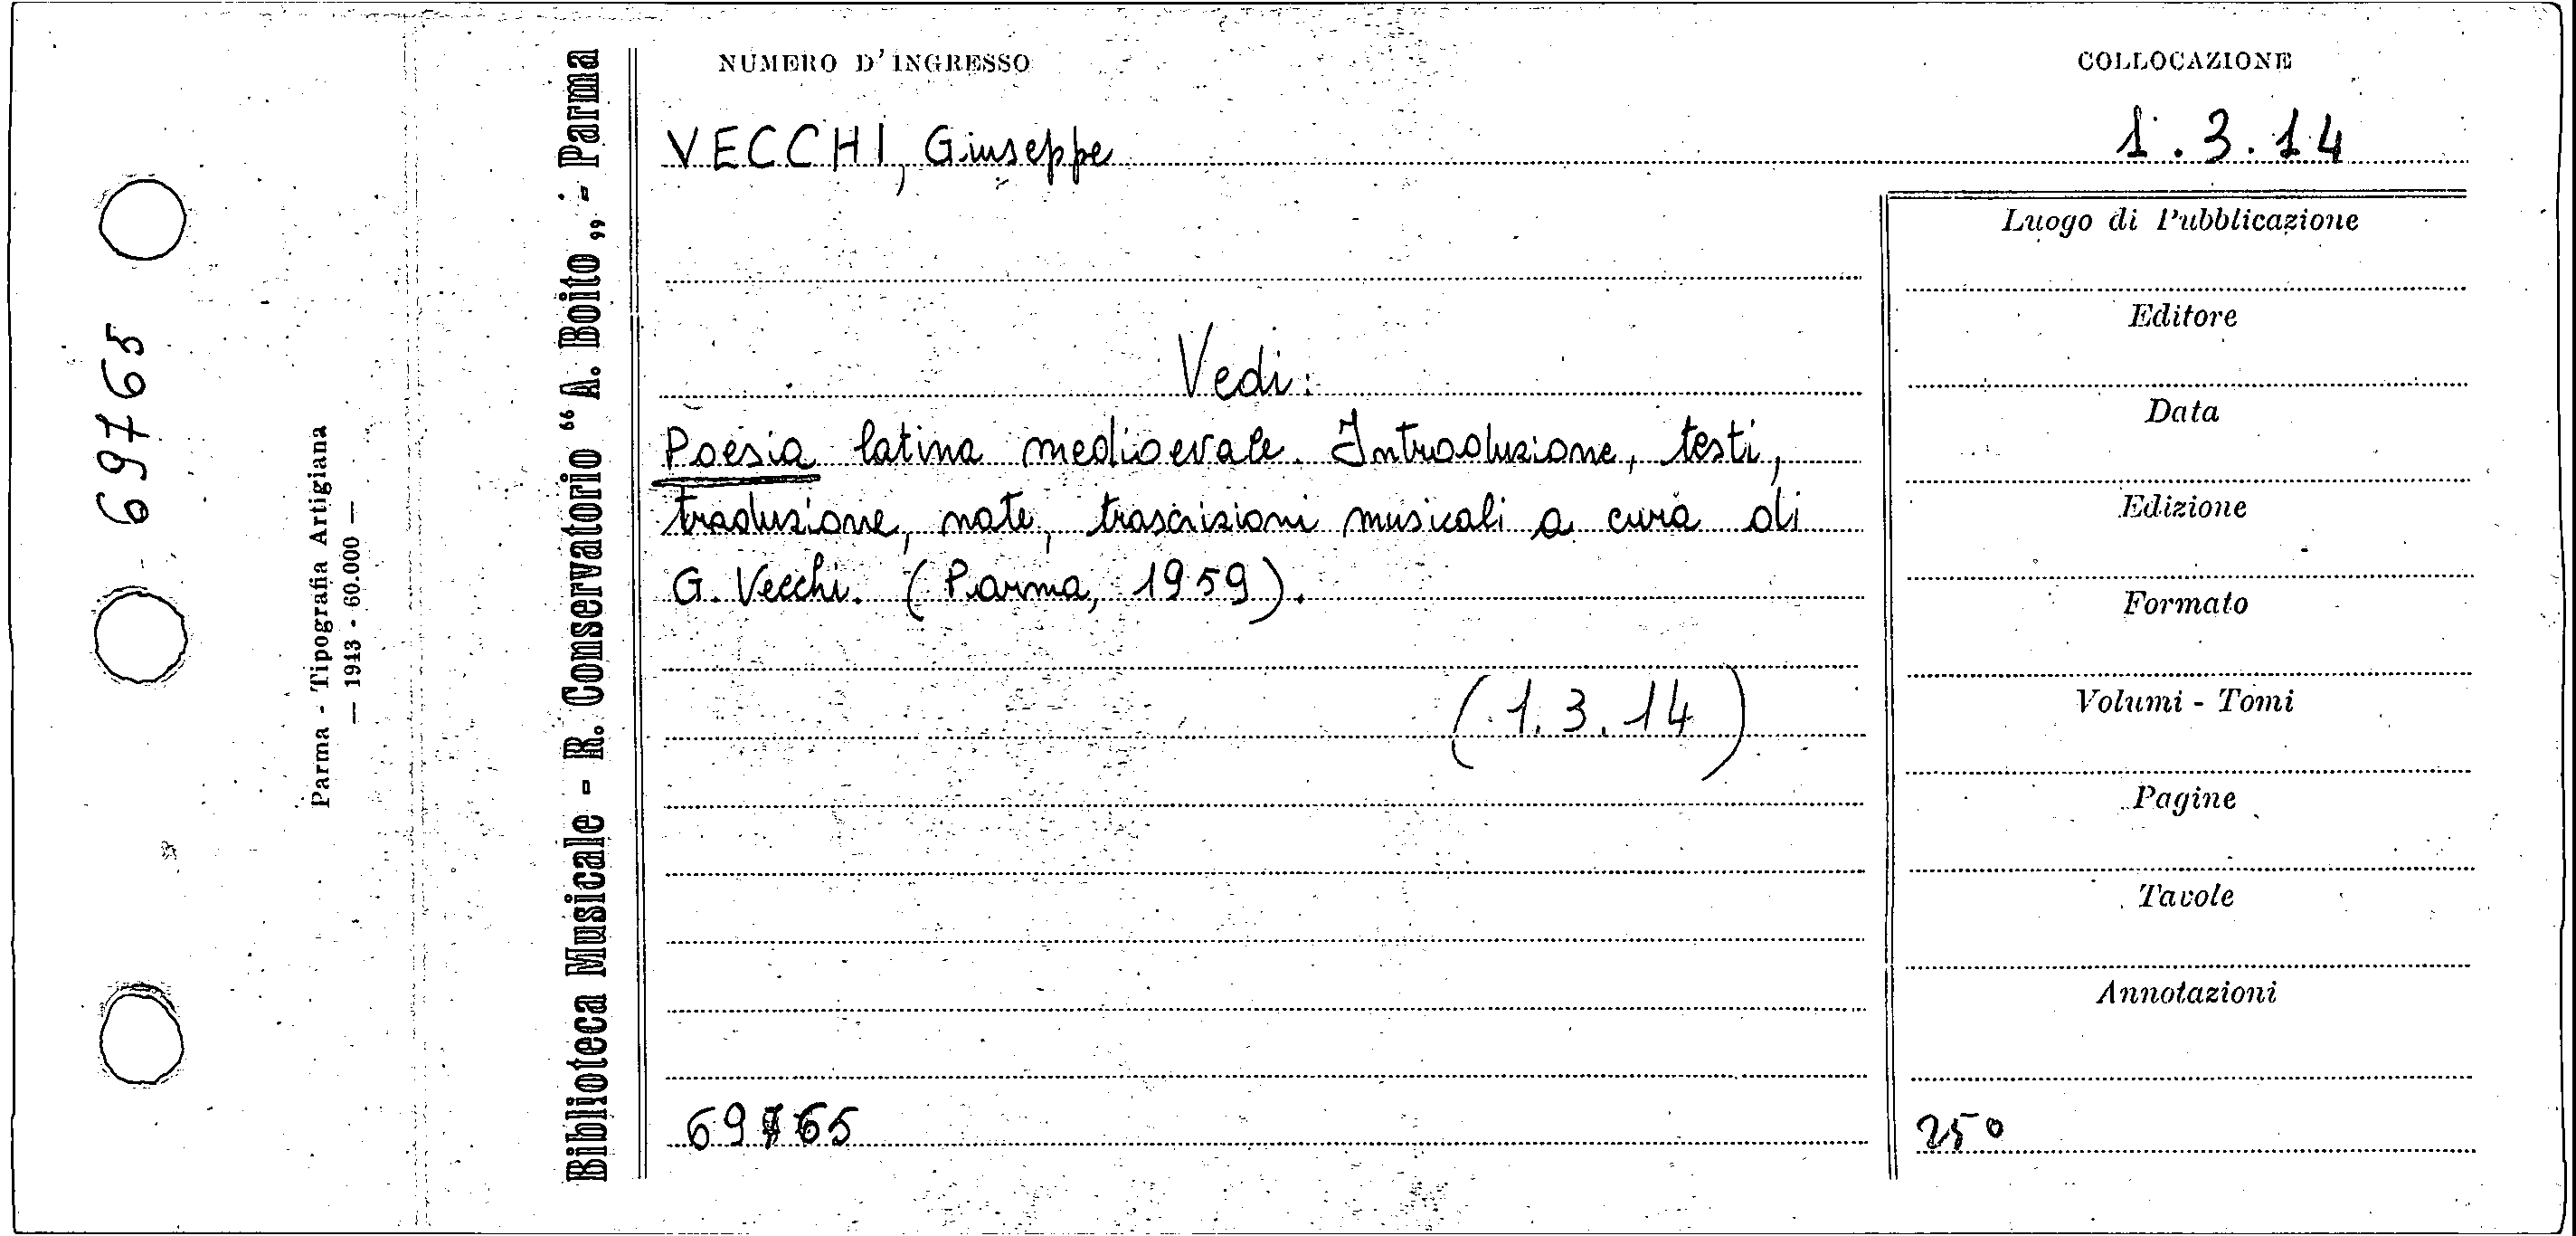 NUMERO D'INGRESSO
COLLOCAZIONE
VECCHI, Giuseppe
1.3.14
Vedi:
Poesia latina medioevale. Introduzione, testi,
traduzione, note, trascrizioni musicali a cura di
G. Vecchi. (Parma, 1959).
(1.3.14)
69765
Luogo di Pubblicazione
Editore
Data
Edizione
Formato
Volumi - Tomi
Pagine
Tavole
Annotazioni
25°
Biblioteca Musicale - R. Conservatorio “A. Boito„ - Parma
Parma - Tipografia Artigiana
— 1943 - 60.000 —
69765